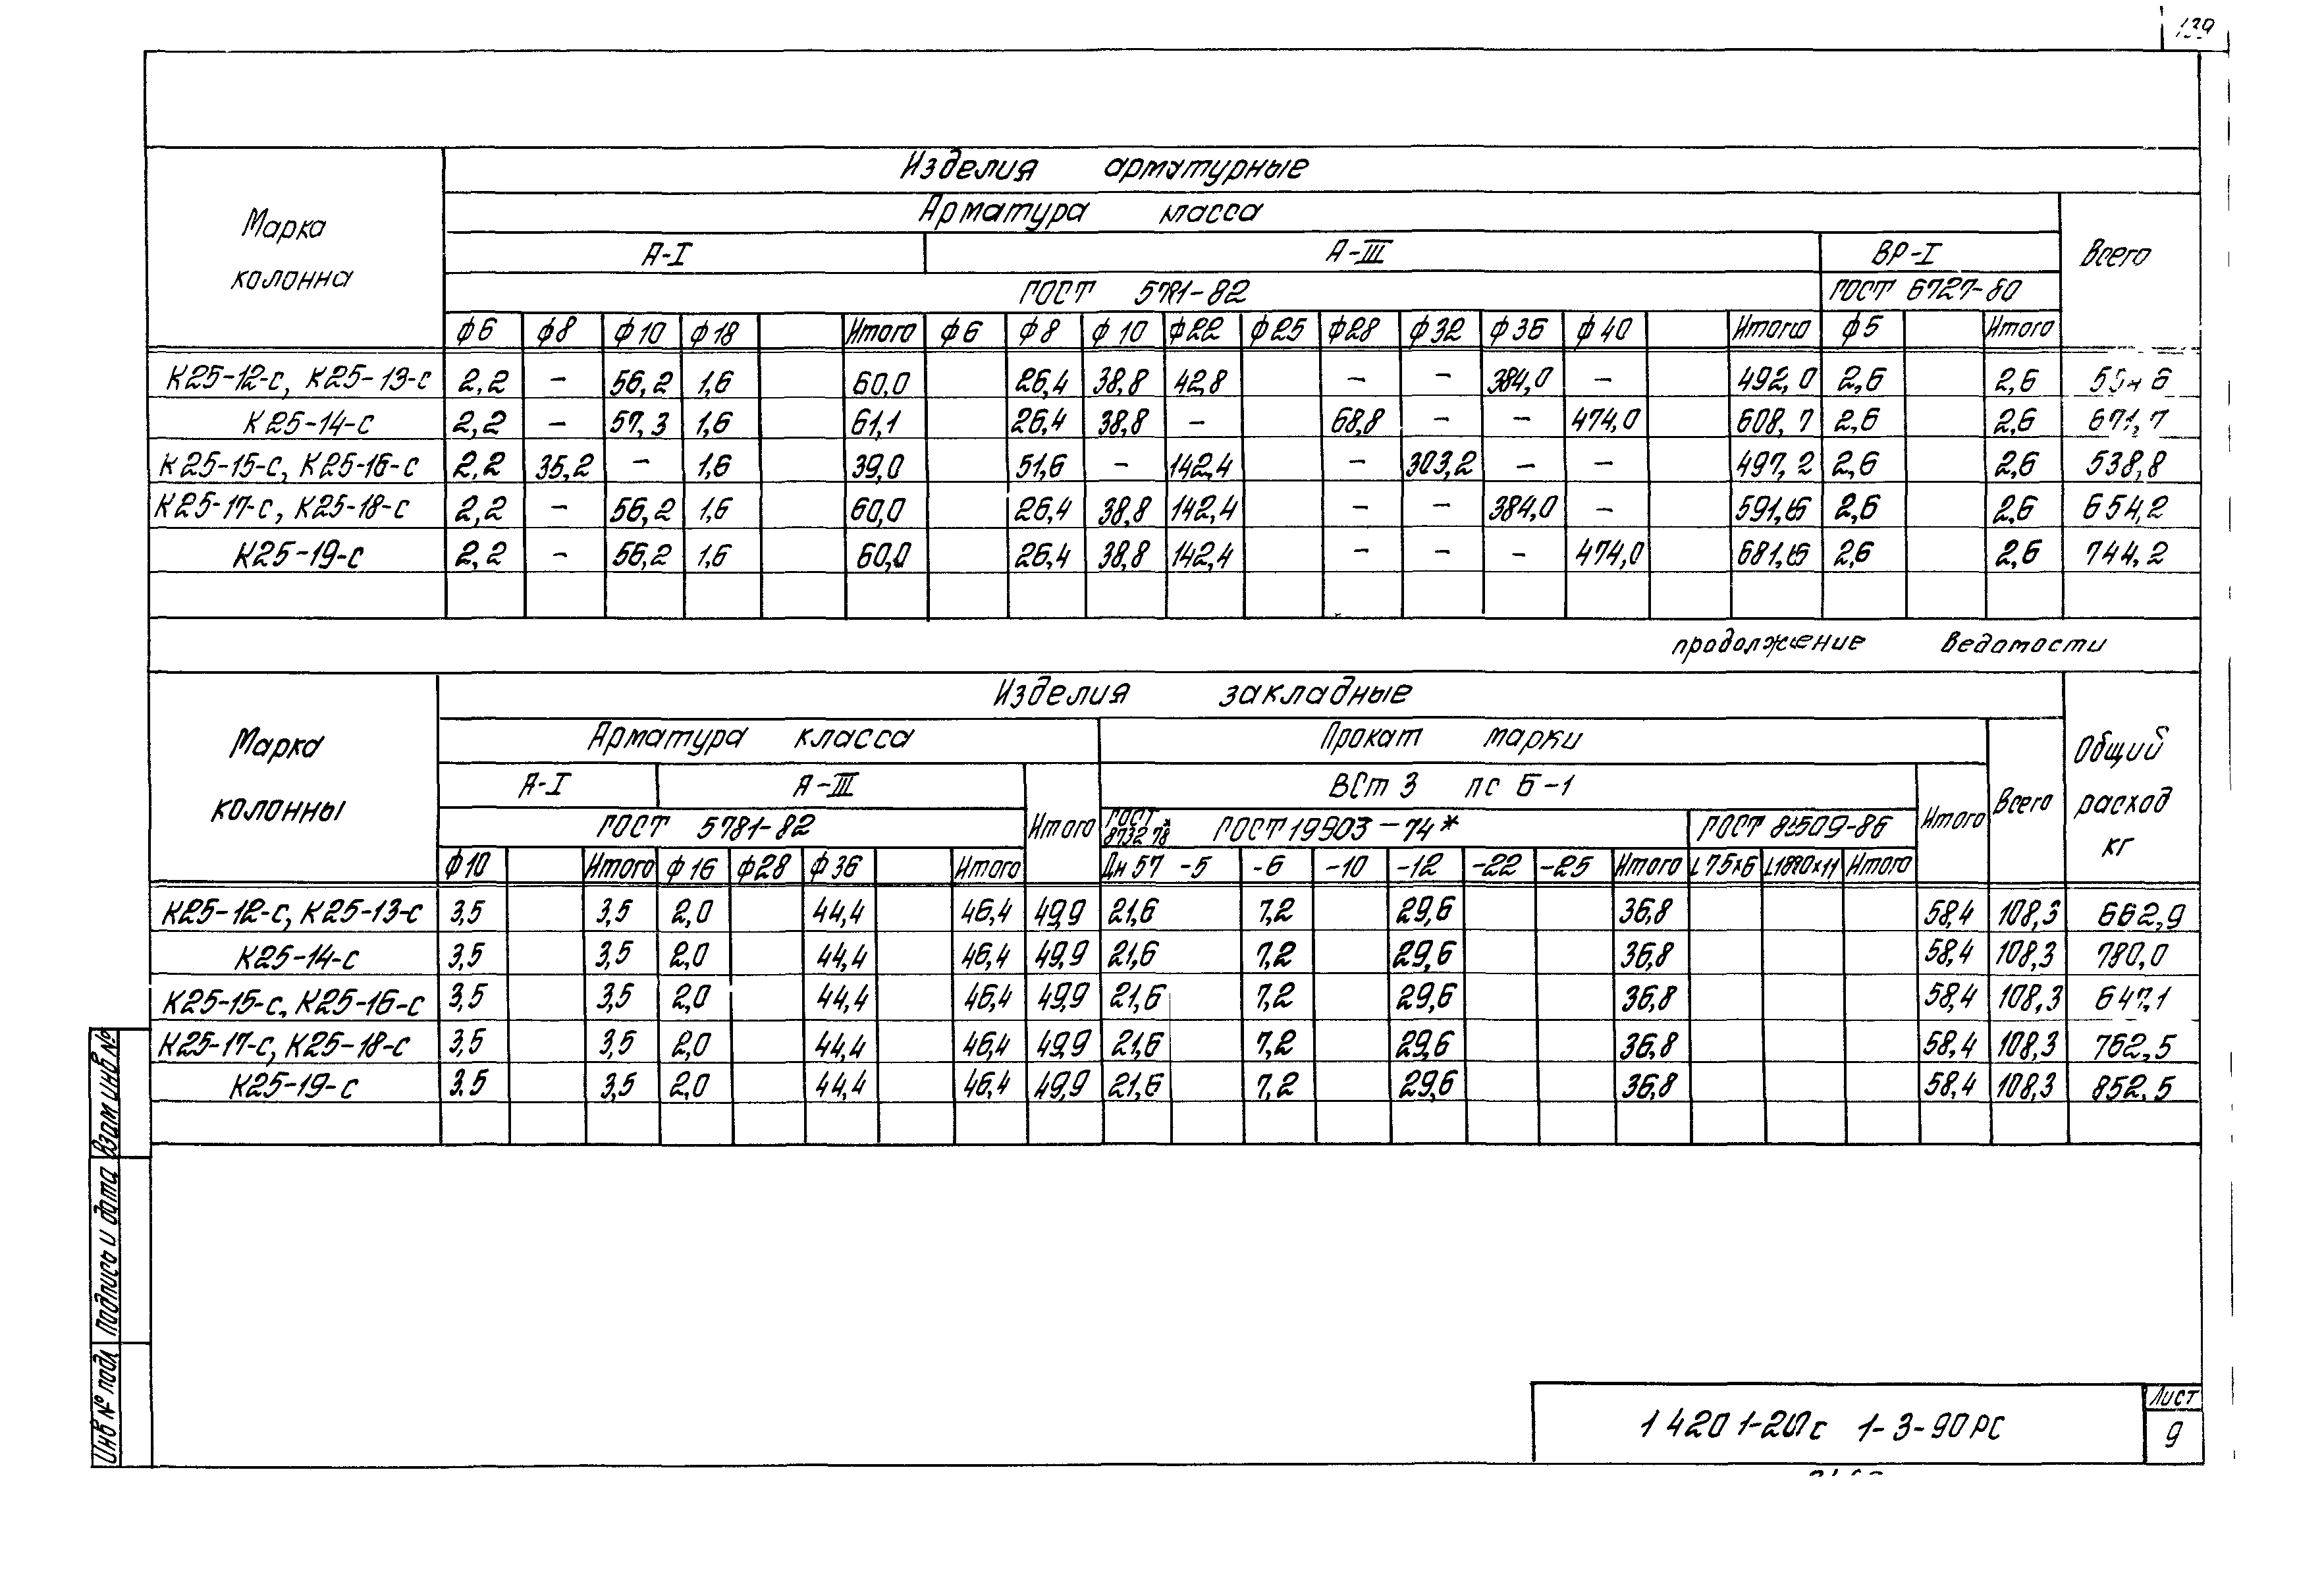 139
Изделия арматурные
Марка колонна
Арматура класса
Всего
А-I А-III ВР-I
ГОСТ 5781-82 ГОСТ 6727-80
ф6 ф8 ф10 ф18 Итого ф6 ф8 ф10 ф22 ф25 ф28 ф32 ф36 ф40 Итого ф5 Итого
К25-12-с, К25-13-с 2,2 – 56,2 1,6 60,0 26,4 38,8 42,8 – – 384,0 – 492,0 2,6 2,6
К25-14-с 2,2 – 57,3 1,6 61,1 26,4 38,8 – 68,8 – – 474,0 608,7 2,6 2,6 671,7
К25-15-с, К25-16-с 2,2 35,2 – 1,6 39,0 51,6 – 142,4 – 303,2 – – 497,2 2,6 2,6 538,8
К25-17-с, К25-18-с 2,2 – 56,2 1,6 60,0 26,4 38,8 142,4 – – 384,0 – 591,6 2,6 2,6 654,2
К25-19-с 2,2 – 56,2 1,6 60,0 26,4 38,8 142,4 – – – 474,0 681,6 2,6 2,6 744,2
продолжение ведомости
Марка колонны
Изделия закладные
Общий расход кг
Арматура класса Прокат марки
Всего
А-I А-III Итого ВСт 3 пс 6-1 Итого
ГОСТ 5781-82 ГОСТ 8732 78* ГОСТ 19903-74* ГОСТ 8509-86
ф10 Итого ф16 ф28 ф36 Итого Дн 57 -5 -6 -10 -12 -22 -25 Итого L75x6 Итого
К25-12-с, К25-13-с 3,5 3,5 2,0 44,4 46,4 49,9 21,6 7,2 29,6 36,8 58,4 108,3 662,9
К25-14-с 3,5 3,5 2,0 44,4 46,4 49,9 21,6 7,2 29,6 36,8 58,4 108,3 780,0
К25-15-с, К25-16-с 3,5 3,5 2,0 44,4 46,4 49,9 21,6 7,2 29,6 36,8 58,4 108,3 647,1
К25-17-с, К25-18-с 3,5 3,5 2,0 44,4 46,4 49,9 21,6 7,2 29,6 36,8 58,4 108,3 762,5
К25-19-с 3,5 3,5 2,0 44,4 46,4 49,9 21,6 7,2 29,6 36,8 58,4 108,3 852,5
Взам инв №
Подпись и дата
Инв № подл
1 420 1-20с 1-3-90РС
Лист
9